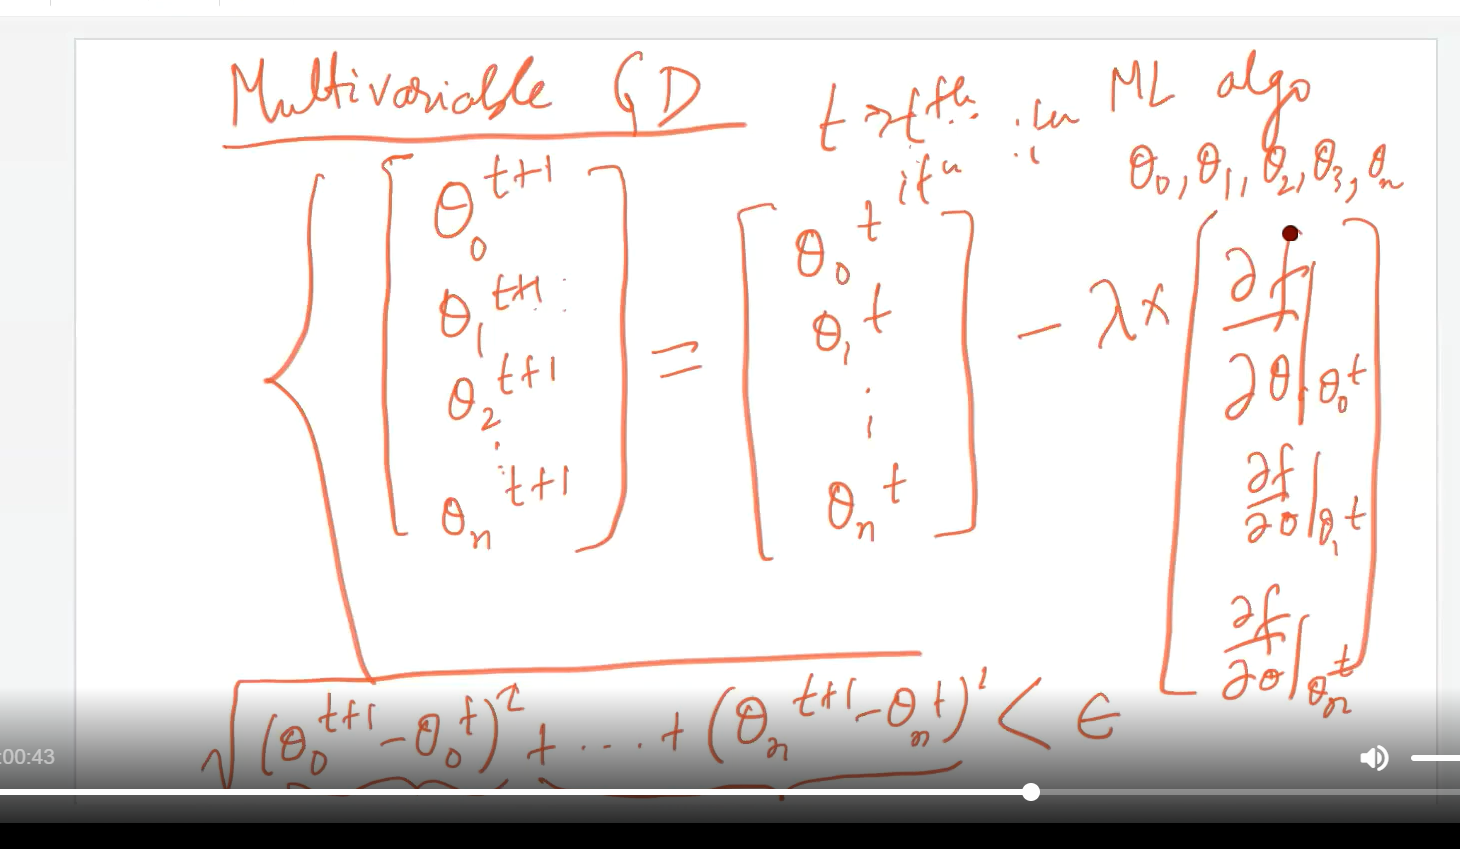 Multivariable GD
t → t^th itn
in ML algo
θ₀, θ₁, θ₂, θ₃, θₙ
[θ₀^(t+1) θ₁^(t+1) θ₂^(t+1) ⋮ θₙ^(t+1)] = [θ₀^t θ₁^t ⋮ θₙ^t] - λ × [∂f/∂θ|θ₀^t ∂f/∂θ|θ₁^t ∂f/∂θ|θₙ^t]
√((θ₀^(t+1) - θ₀^t)² + .... + (θₙ^(t+1) - θₙ^t)²) < ∈
:00:43